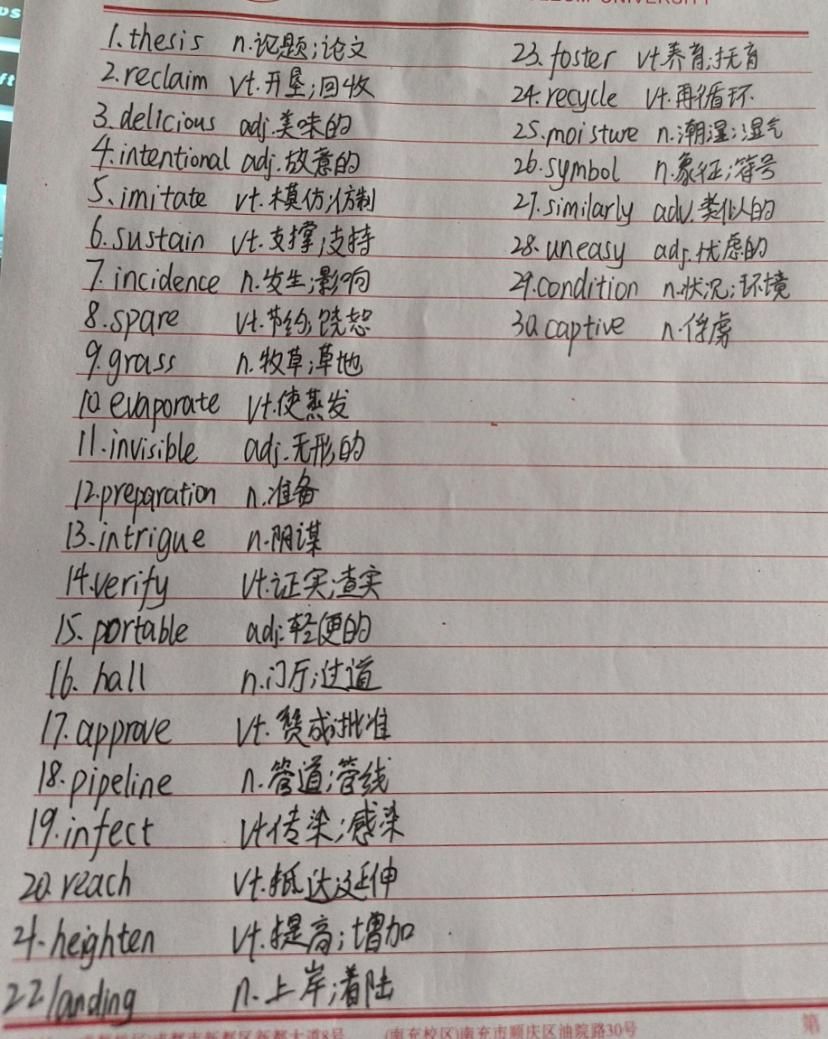 UNIVERSITY
1.thesis n.论题;论文
2.reclaim vt.开垦;回收
3.delicious adj.美味的
4.intentional adj.故意的
5.imitate vt.模仿;仿制
6.sustain vt.支撑;支持
7.incidence n.发生;影响
8.spare vt.节约;饶恕
9.grass n.牧草;草地
10.evaporate vt.使蒸发
11.invisible adj.无形的
12.preparation n.准备
13.intrigue n.阴谋
14.verify vt.证实;查实
15.portable adj.轻便的
16.hall n.门厅;过道
17.approve vt.赞成;批准
18.pipeline n.管道;管线
19.infect vt.传染;感染
20.reach vt.抵达;延伸
21.heighten vt.提高;增加
22.landing n.上岸;着陆
23.foster vt.养育;抚育
24.recycle vt.再循环
25.moisture n.潮湿;湿气
26.symbol n.象征;符号
27.similarly adv.类似的
28.uneasy adj.忧虑的
29.condition n.状况;环境
30.captive n.俘虏
成都市新都区新都大道8号 (南充校区)南充市顺庆区油院路30号 第